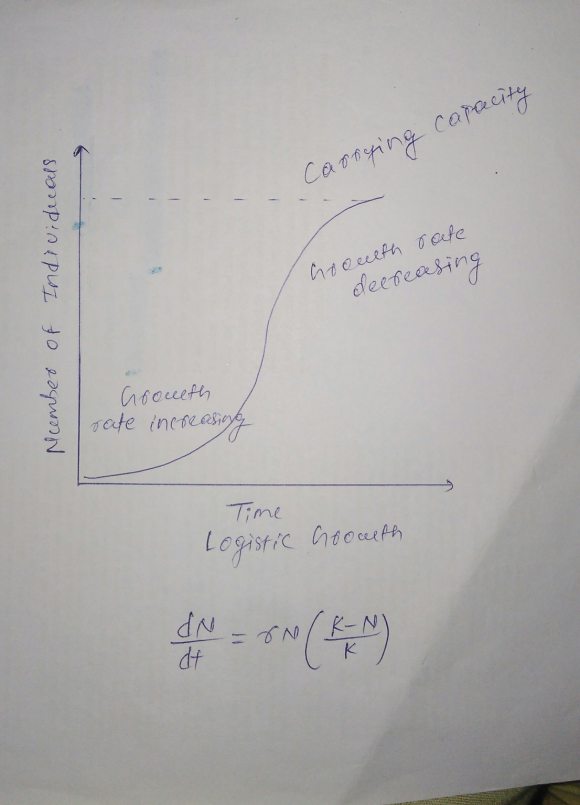 Carrying capacity
Number of Individuals
Growth rate
decreasing
Growth
rate increasing
Time
Logistic Growth
dN/dt = rN(K-N/K)